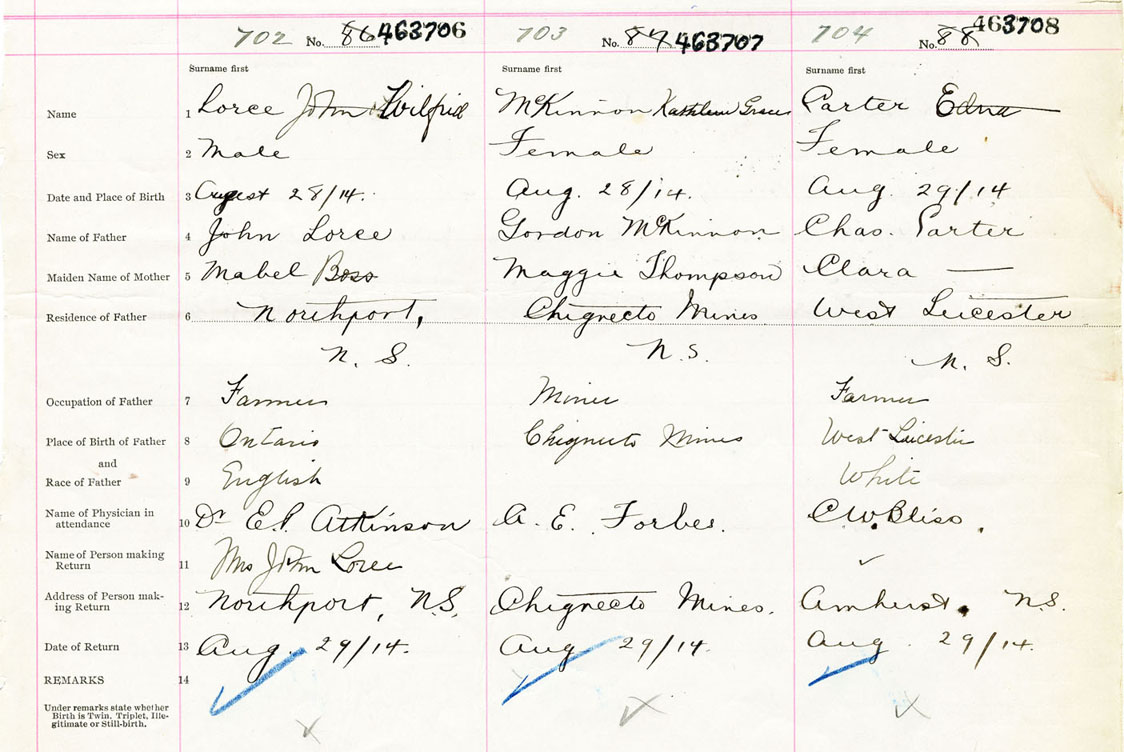 702 No. 86 463706 703 No. 87 463707 704 No. 88 463708
Surname first Surname first Surname first
Name 1 Loree John Wilfrid McKinnon Kathleen Grace Parter Edna
Sex 2 Male Female Female
Date and Place of Birth 3 August 28/14. Aug. 28/14. Aug 29/14
Name of Father 4 John Loree Gordon McKinnon Chas. Parter
Maiden Name of Mother 5 Mabel Boss Maggie Thompson Clara —
Residence of Father 6 Northport, Chignecto Mines West Leicester
N. S. N.S. N. S.
Occupation of Father 7 Farmer Miner Farmer
Place of Birth of Father 8 Ontario Chignecto Mines West Leicester
and
Race of Father 9 English White
Name of Physician in
attendance 10 Dr E.P. Atkinson A. E. Forbes. C.W. Bliss.
Name of Person making
Return 11 Mrs John Loree
Address of Person mak-
ing Return 12 Northport, N.S. Chignecto Mines. Amherst, N.S.
Date of Return 13 Aug. 29/14. Aug 29/14. Aug. 29/14.
REMARKS 14
Under remarks state whether
Birth is Twin, Triplet, Ille-
gitimate or Still-birth.